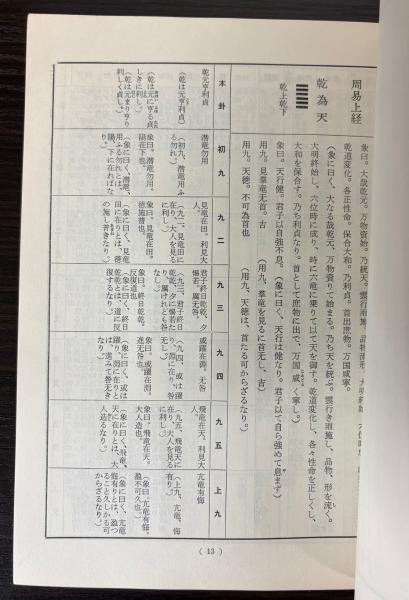 周易上経
乾為天
乾上乾下
彖曰。大哉乾元。万物資始。乃統天。雲行雨施。品物流形。大明終始。
乾道変化。各正性命。保合大和。乃利貞。首出庶物。万国咸寧。
(彖に曰く、大なる哉乾元、万物資りて始まる。乃ち天を統ぶ。雲行き雨施し、品物、形を流く。
大明終始し、六位時に成り、時に六竜に乗りて以て天を御す。乾道変化し、各々性命を正しくし、
大和を保合す。乃ち利貞なり。首として庶物に出で、万国咸く寧し。)
象曰。天行健。君子以自強不息。(象に曰く、天行は健なり。君子以て自ら強めて息まず)
用九。見羣竜无首。吉 (用九、羣竜を見るに首无し、吉)
用九。天徳。不可為首也 (用九、天徳は、首たる可からざるなり。)
本卦
乾元亨利貞
(乾は元亨利貞)
(乾は元に亨る貞しきに利し。)
(乾は元まり亨り利しく貞し。)
初九
潜竜勿用。
(初九、潜竜用ふる勿れ。)
象曰。潜竜勿用。陽在下也。
(象に曰く、潜竜、用ふる勿れとは、陽、下に在ればなり。)
九二
見竜在田。利見大人。
(九二、見竜田に在り、大人を見るに利し。)
象曰。見竜在田。徳施普也。
(象に曰く、見竜田に在りとは、徳の施し普きなり。)
九三
君子終日乾乾。夕惕若。厲无咎。
(九三、君子終日乾乾、夕べ惕若たり、厲けれども咎なし。)
象曰。終日乾乾。反復道也
(象に曰く、終日乾乾とは、道に反復するなり。)
九四
或躍在淵。无咎
(九四、或は躍りて淵に在り、咎无し。)
象曰。或躍在淵。進无咎也。
(象に曰く、或は躍り、淵に在りとは、進みて咎无きなり)
九五
飛竜在天。利見大人。
(九五、飛竜天に在り、大人を見るに利し。)
象曰。飛竜在天。大人造也。
(象に曰く、飛竜、天に在りとは、大人造るなり。)
上九
亢竜有悔
(上九、亢竜、悔有り。)
象曰。亢竜有悔。盈不可久也。
(象に曰く、亢竜悔有りとは、盈つること久しかる可からざるなり。)
( 13 )